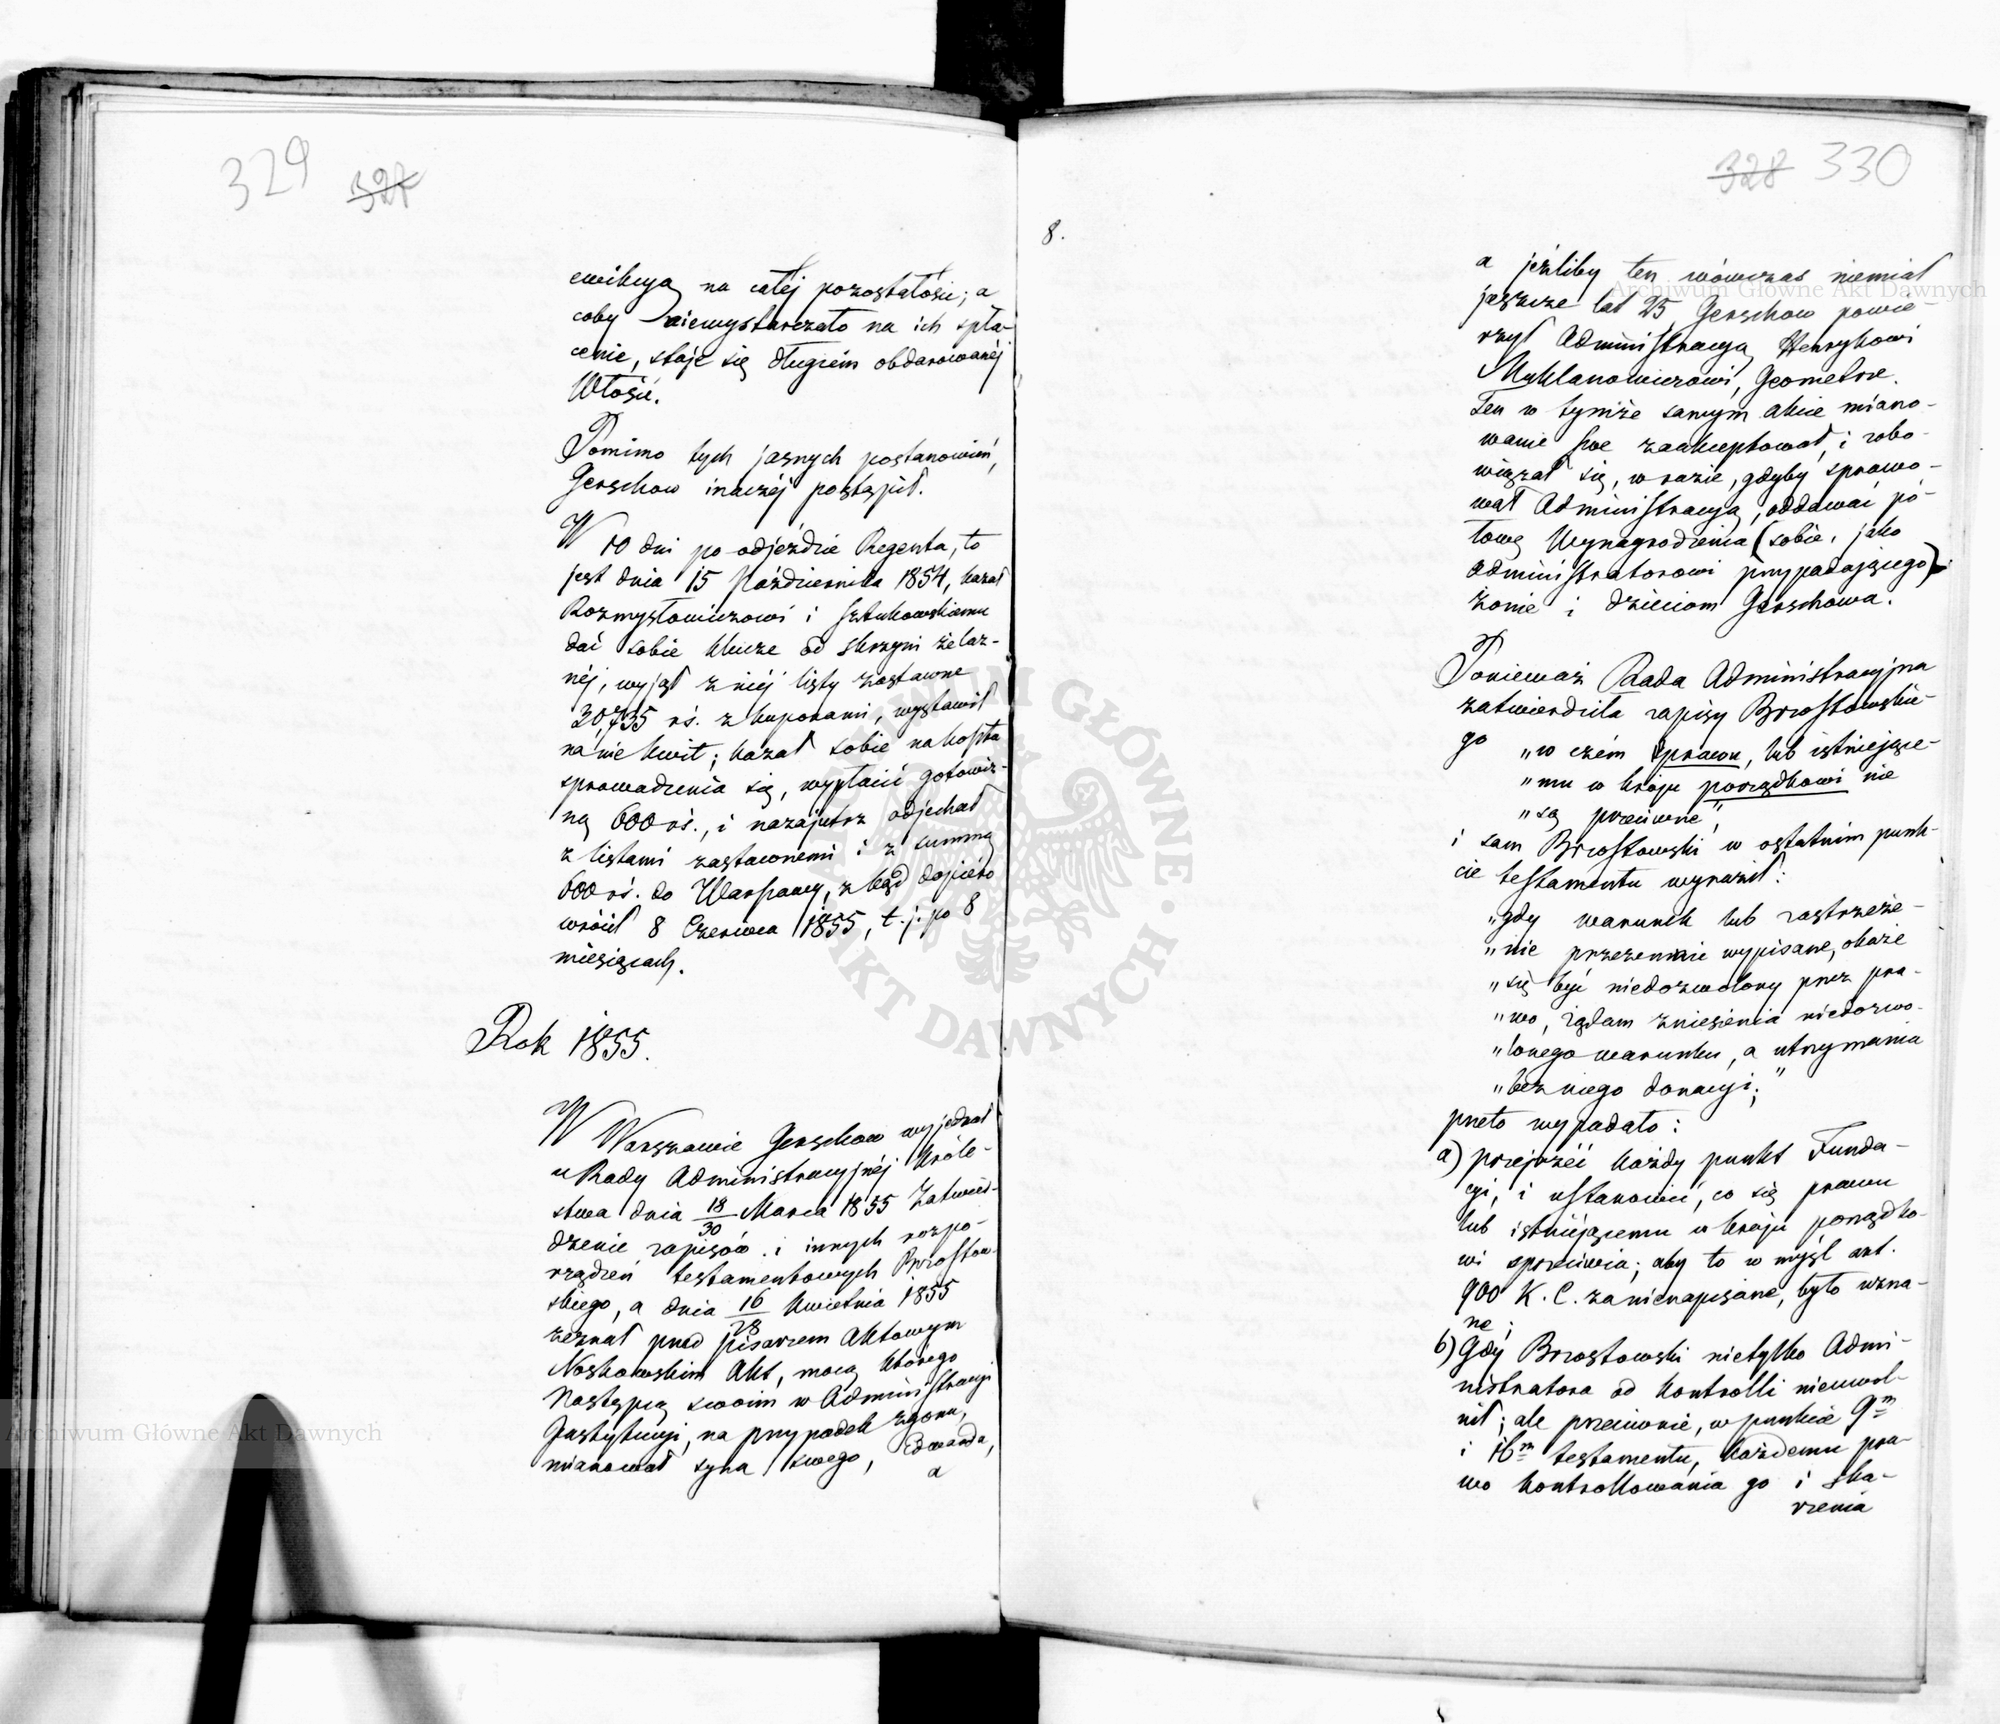 329 327
ewikcyą na całéj pozostałości; a
coby niewystarczało na ich spła-
cenie, staje się długiem obdarowanéj
Włości.
Pomimo tych jasnych postanowień,
Gerschow inaczéj postąpił.
W 10 dni po odjeździe Regenta, to
jest dnia 15 Października 1854, kazał
Rozmysłowiczowi i Sztukowskiemu
dać sobie klucze od skrzyni żelaz-
néj, wyjął z niéj listy zastawne
30,735 rś. z kuponami, wystawił
na nie kwit; kazał sobie na koszta
sprowadzenia się, wypłacić gotowiz-
ną 600 rś., i nazajutrz odjechał
z listami zastawnemi i z summą
600 rś. do Warszawy, zkąd dopiéro
wrócił 8 Czerwca 1855, t. j. po 8
miesiącach.
Rok 1855.
W Warszawie Gerschow wyjednał
u Rady Administracyjnéj Króle-
stwa dnia 18/30 Marca 1855 Zatwier-
dzenie zapisów i innych rozpo-
rządzeń testamentowych Brzostow-
skiego, a dnia 16/28 Kwietnia 1855
zeznał przed pisarzem Aktowym
Noskowskim Akt, mocą którego
Następcą swoim w Administracji
Instytucji, na przypadek zgonu,
mianował syna swego, Edwarda,
a
328 330
8.
a jeżliby ten wówczas niemiał
jeszcze lat 25, Gerschow powie-
rzył Administracyą Henrykowi
Muklanowiczowi, Geometrze.
Ten w tymże samym akcie miano-
wanie swe zaakceptował, i zobo-
wiązał się, w razie, gdyby sprawo-
wał Administracyą, oddawać po-
łowę Wynagrodzenia (sobie, jako
Administratorowi przypadającego)
żonie i dzieciom Gerschowa.
Ponieważ Rada Administracyjna
zatwierdziła zapisy Brzostowskie-
go „w czém prawu, lub istniejące-
„mu w kraju porządkowi nie
„są przeciwne",
i sam Brzostowski w ostatnim punk-
cie testamentu wyraził:
„gdy warunek lub zastrzeże-
„nie przezemnie wypisane, okaże
„się być niedozwolony przez pra-
„wo, żądam zniesienia niedozwo-
„lonego warunku, a utrzymania
„bez niego donacyi;"
przeto wypadało:
a) przejrzéć każdy punkt Funda-
cyi, i ustanowić, co się prawu
lub istniejącemu w kraju porządko-
wi sprzeciwia; aby to w myśl art.
900 K. C. za nienapisane, było uzna-
ne;
b) Gdy Brzostowski nietylko Admi-
nistratora od kontrolli nieuwol-
nił; ale przeciwnie, w punkcie 9m
i 16m testamentu, każdemu pra-
wo kontrollowania go i ska-
rzenia
Archiwum Główne Akt Dawnych
Archiwum Główne Akt Dawnych
ARCHIWUM GŁÓWNE • AKT DAWNYCH •